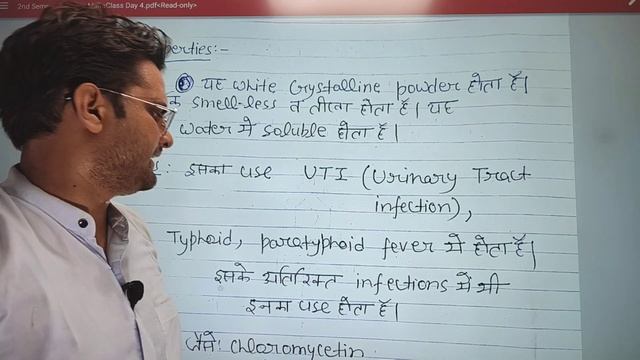 2nd Sem Class Day 4.pdf<Read-only>
perties:-
यह white Crystalline powder होता है।
smell-less व तीखा होता है। यह
water में soluble होता है।
इसका use UTI (Urinary Tract
infection),
Typhoid, paratyphoid fever में होता है।
इसके अतिरिक्त infections में भी
इनका use होता है।
जैसे: Chloromycetin